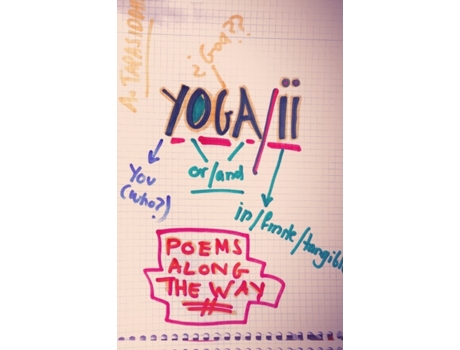 ¿ God??
YOGA/ïï
You
(who?)
or/and
in/finite/tangible
POEMS
ALONG
THE WAY